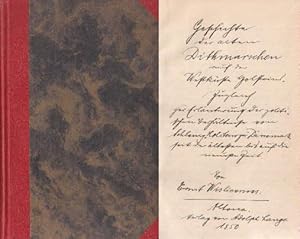 Geschichte
der alten
Dithmarschen
auf der
Westküste Holsteins.
Zugleich
zur Erläuterung der politi-
schen Verhältnisse von
seit der ältesten bis auf die
neueste Zeit
Von
Ernst
Altona.
Verlag von Adolph Lange
1850